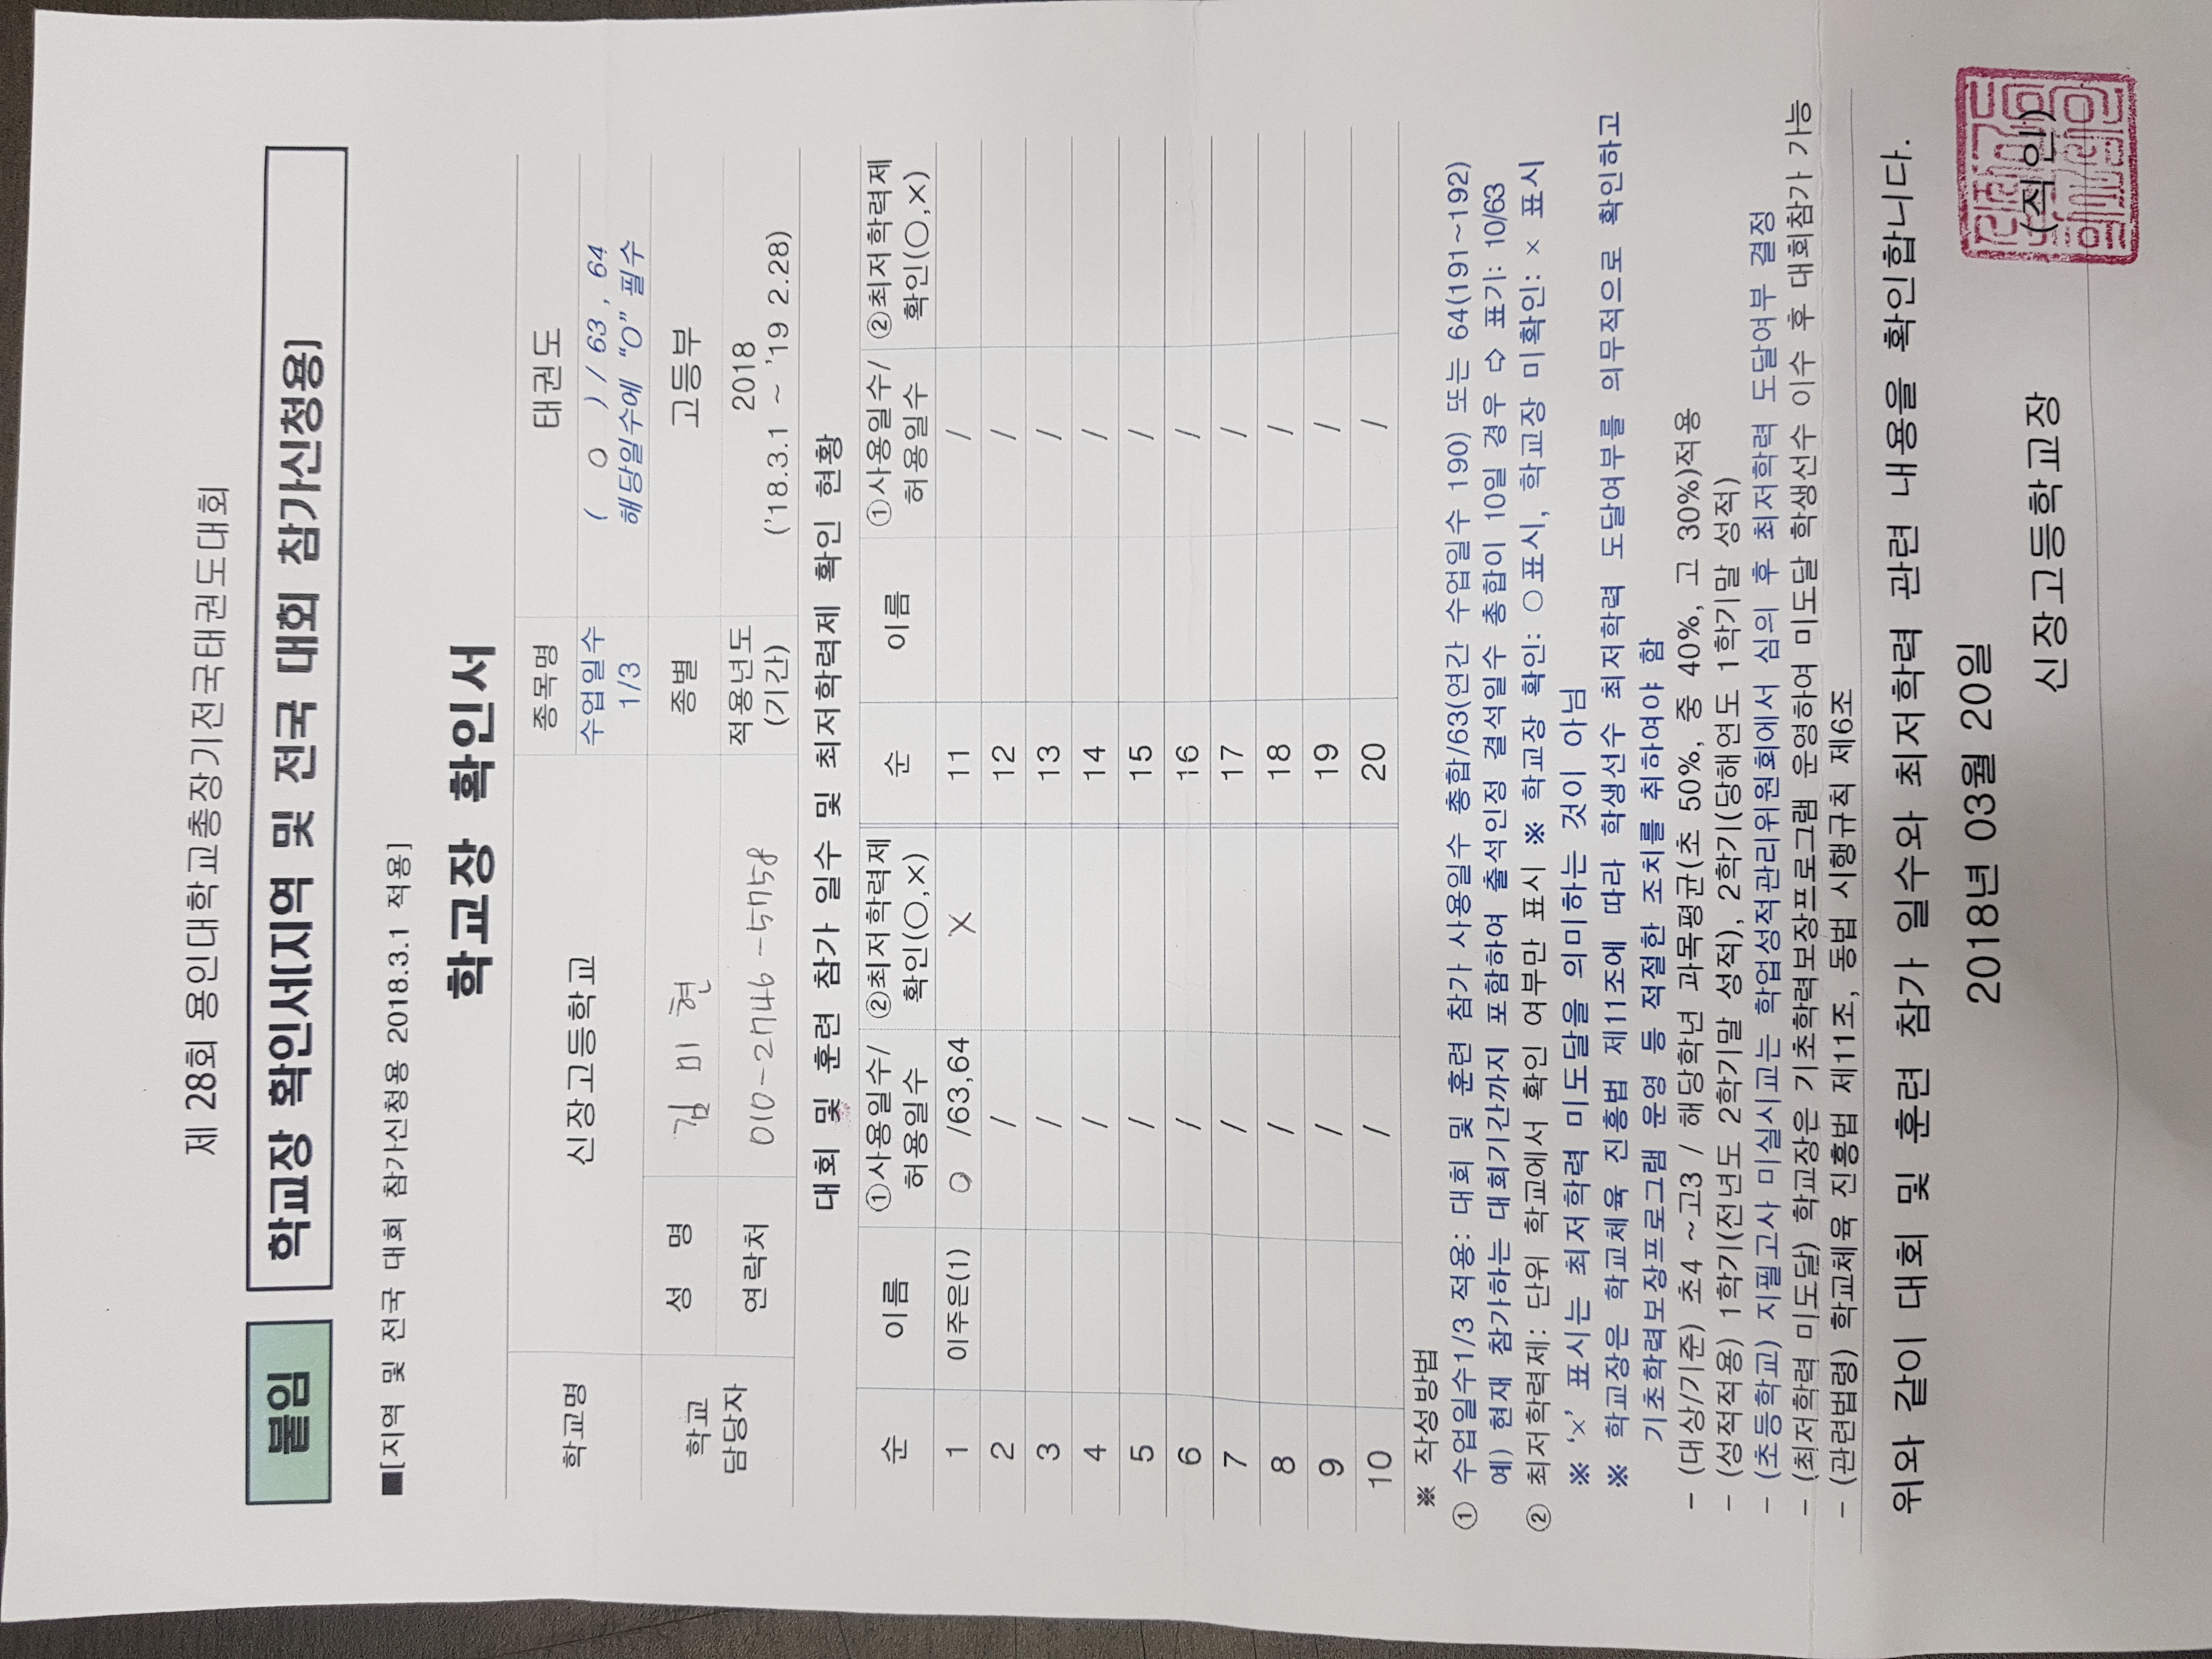 제 28회 용인대학교총장기전국태권도대회
붙임 학교장 확인서[지역 및 전국 대회 참가신청용]
■[지역 및 전국 대회 참가신청용 2018.3.1 적용]
학교장 확인서
학교명 신장고등학교 종목명 태권도
수업일수 1/3 ( O ) / 63 , 64
해당일수에 "O" 필수
학교 담당자 성 명 김 미 현 종별 고등부
연락처 010-2746-5758 적용년도 (기간) 2018
('18.3.1 ~ '19 2.28)
대회 및 훈련 참가 일수 및 최저학력제 확인 현황
순 이름 ①사용일수/ 허용일수 ②최저학력제 확인(○,×) 순 이름 ①사용일수/ 허용일수 ②최저학력제 확인(○,×)
1 이주은(1) O /63,64 X 11 /
2 / 12 /
3 / 13 /
4 / 14 /
5 / 15 /
6 / 16 /
7 / 17 /
8 / 18 /
9 / 19 /
10 / 20 /
※ 작성방법
① 수업일수1/3 적용: 대회 및 훈련 참가 사용일수 총합/63(연간 수업일수 190) 또는 64(191~192)
예) 현재 참가하는 대회기간까지 포함하여 출석인정 결석일수 총합이 10일 경우 ⇨ 표기: 10/63
② 최저학력제: 단위 학교에서 확인 여부만 표시 ※ 학교장 확인: ○표시, 학교장 미확인: × 표시
※ '×' 표시는 최저학력 미도달을 의미하는 것이 아님
※ 학교장은 학교체육 진흥법 제11조에 따라 학생선수 최저학력 도달여부를 의무적으로 확인하고
기초학력보장프로그램 운영 등 적절한 조치를 취하여야 함
- (대상/기준) 초4 ~고3 / 해당학년 과목평균(초 50%, 중 40%, 고 30%)적용
- (성적적용) 1학기(전년도 2학기말 성적), 2학기(당해연도 1학기말 성적)
- (초등학교) 지필고사 미실시교는 학업성적관리위원회에서 심의 후 최저학력 도달여부 결정
- (최저학력 미도달) 학교장은 기초학력보장프로그램 운영하여 미도달 학생선수 이수 후 대회참가 가능
- (관련법령) 학교체육 진흥법 제11조, 동법 시행규칙 제6조
위와 같이 대회 및 훈련 참가 일수와 최저학력 관련 내용을 확인합니다.
2018년 03월 20일
신장고등학교장 (직인)